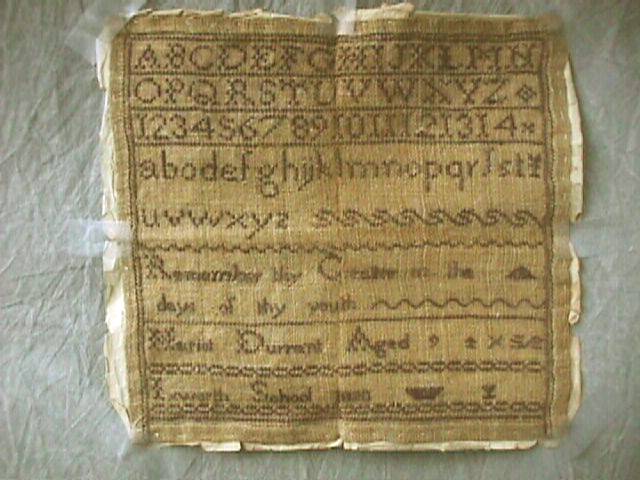 ABCDEFGHIJKLMN
OPQRSTUVWXYZ
1234567891011121314
abcdefghijklmnopqrſst
uvwxyz
Remember thy Creator in the
days of thy youth
Durrant Aged 9
Ixworth School